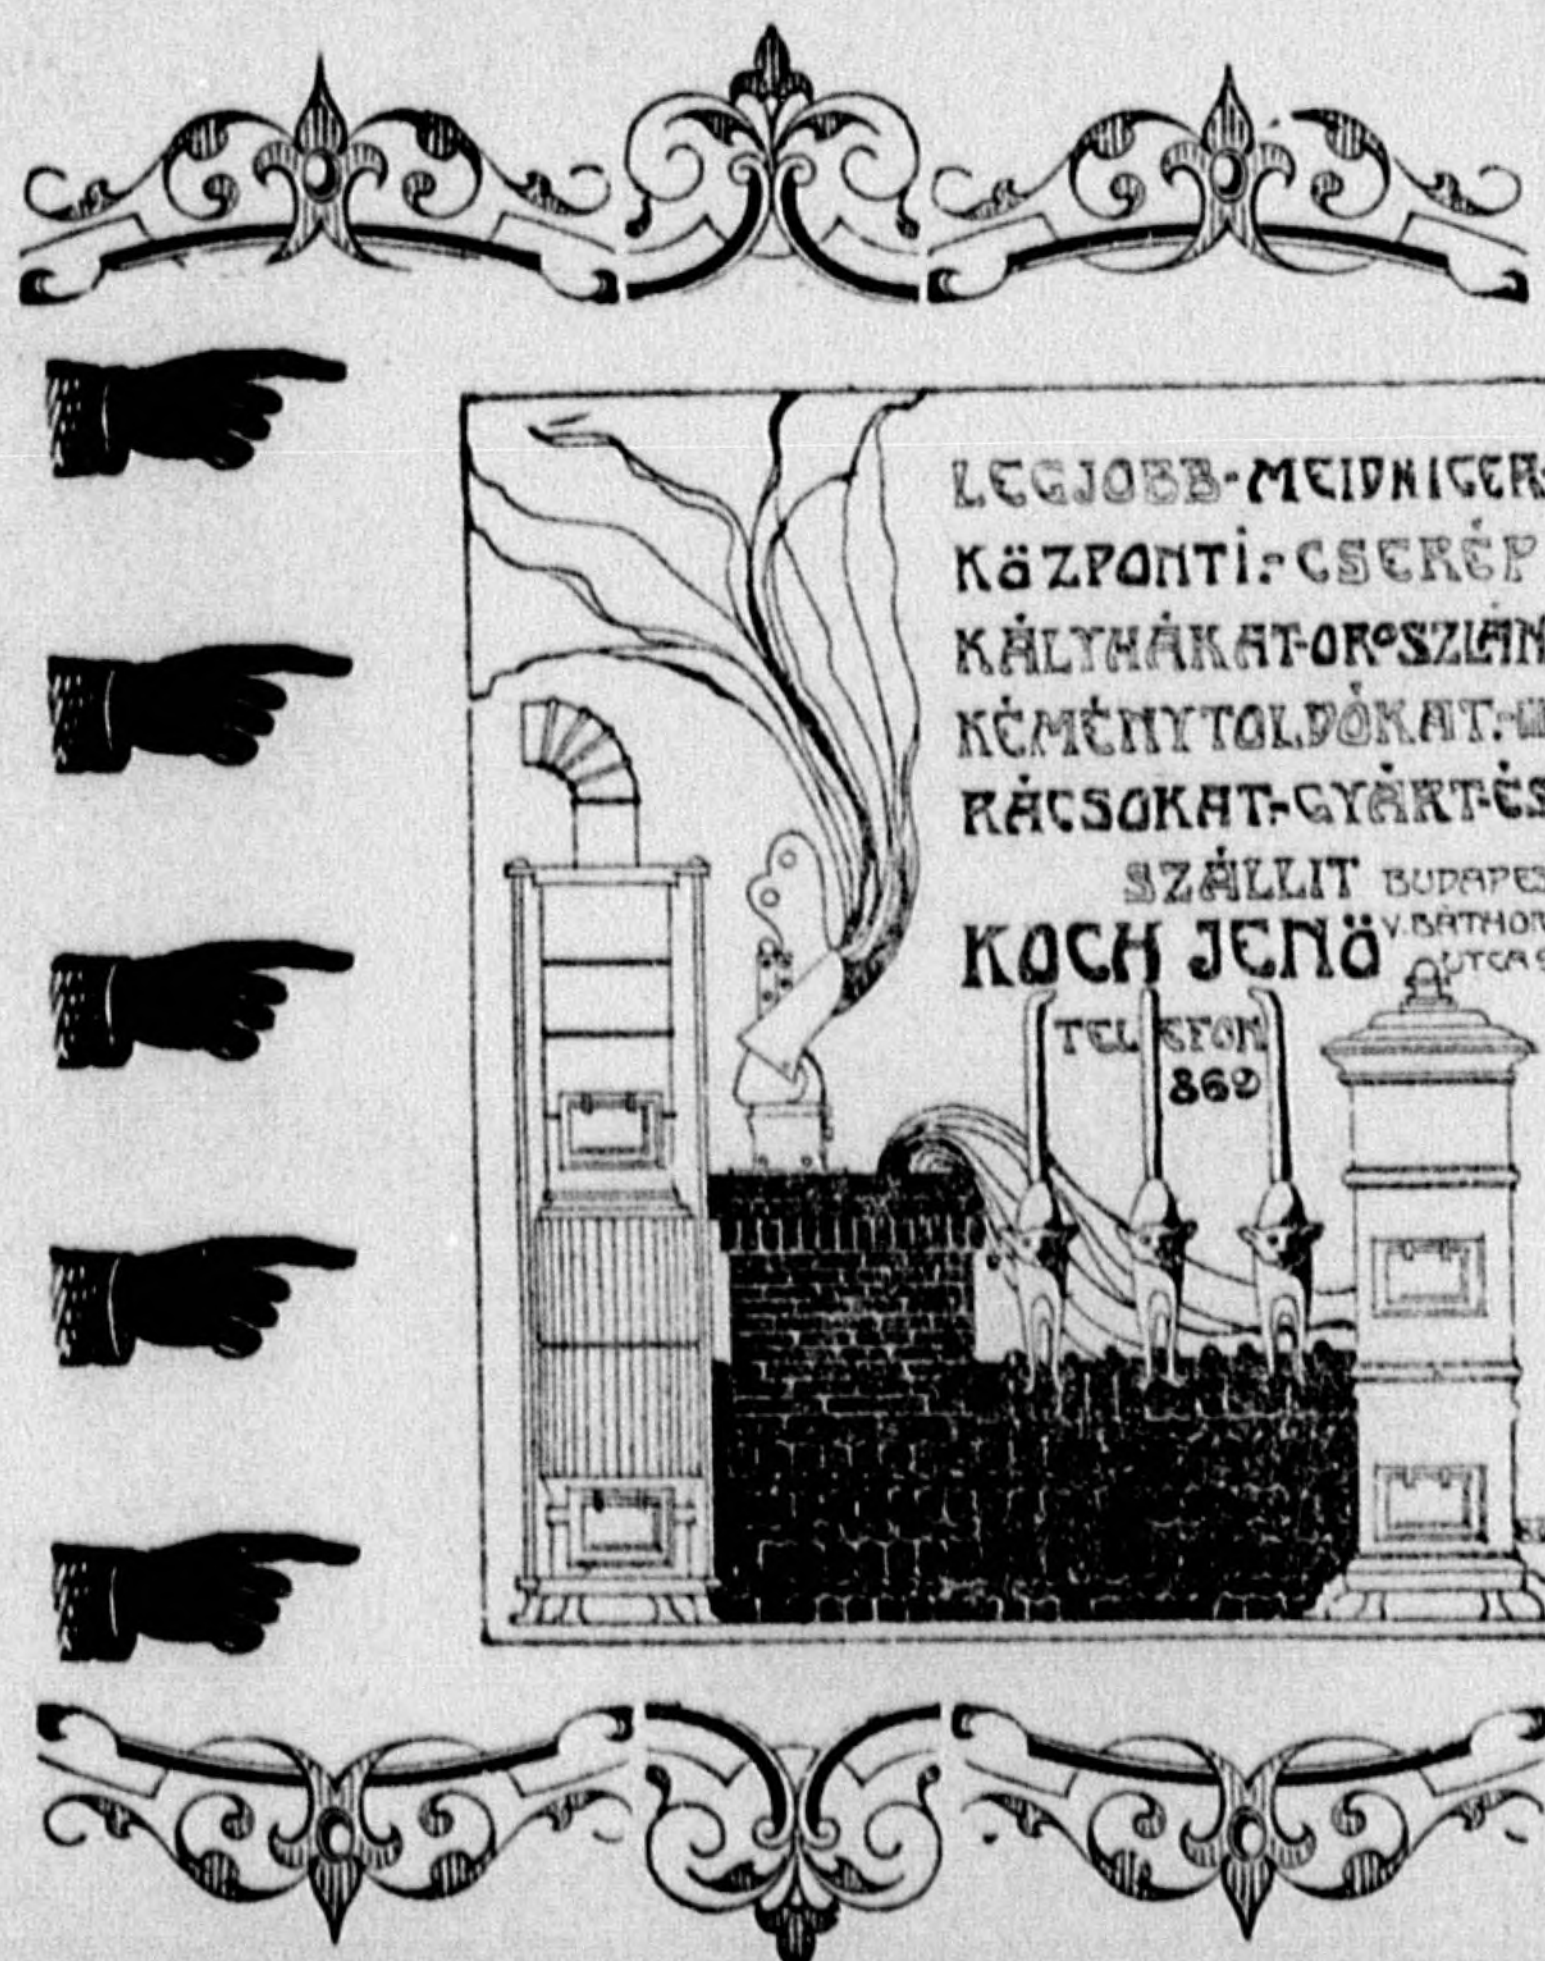 LEGJOBB-MEIDNIGER-
KÖZPONTI-CSERÉP
KÁLYHÁKAT-OROSZLÁN
KÉMÉNYTOLDÓKAT-
RÁCSOKAT-GYÁRT-ÉS
SZÁLLIT BUDAPES
KOCH JENÖ V. BÁTHOR
UTCA
TELEFON
869